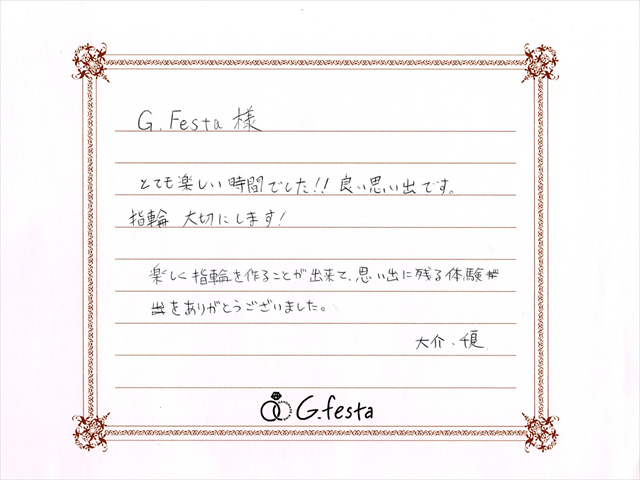 G.Festa 様
とても楽しい時間でした!! 良い思い出です。
指輪 大切にします!
楽しく指輪を作ることが出来て、思い出に残る体験が
出をありがとうございました。
大介・
G.festa